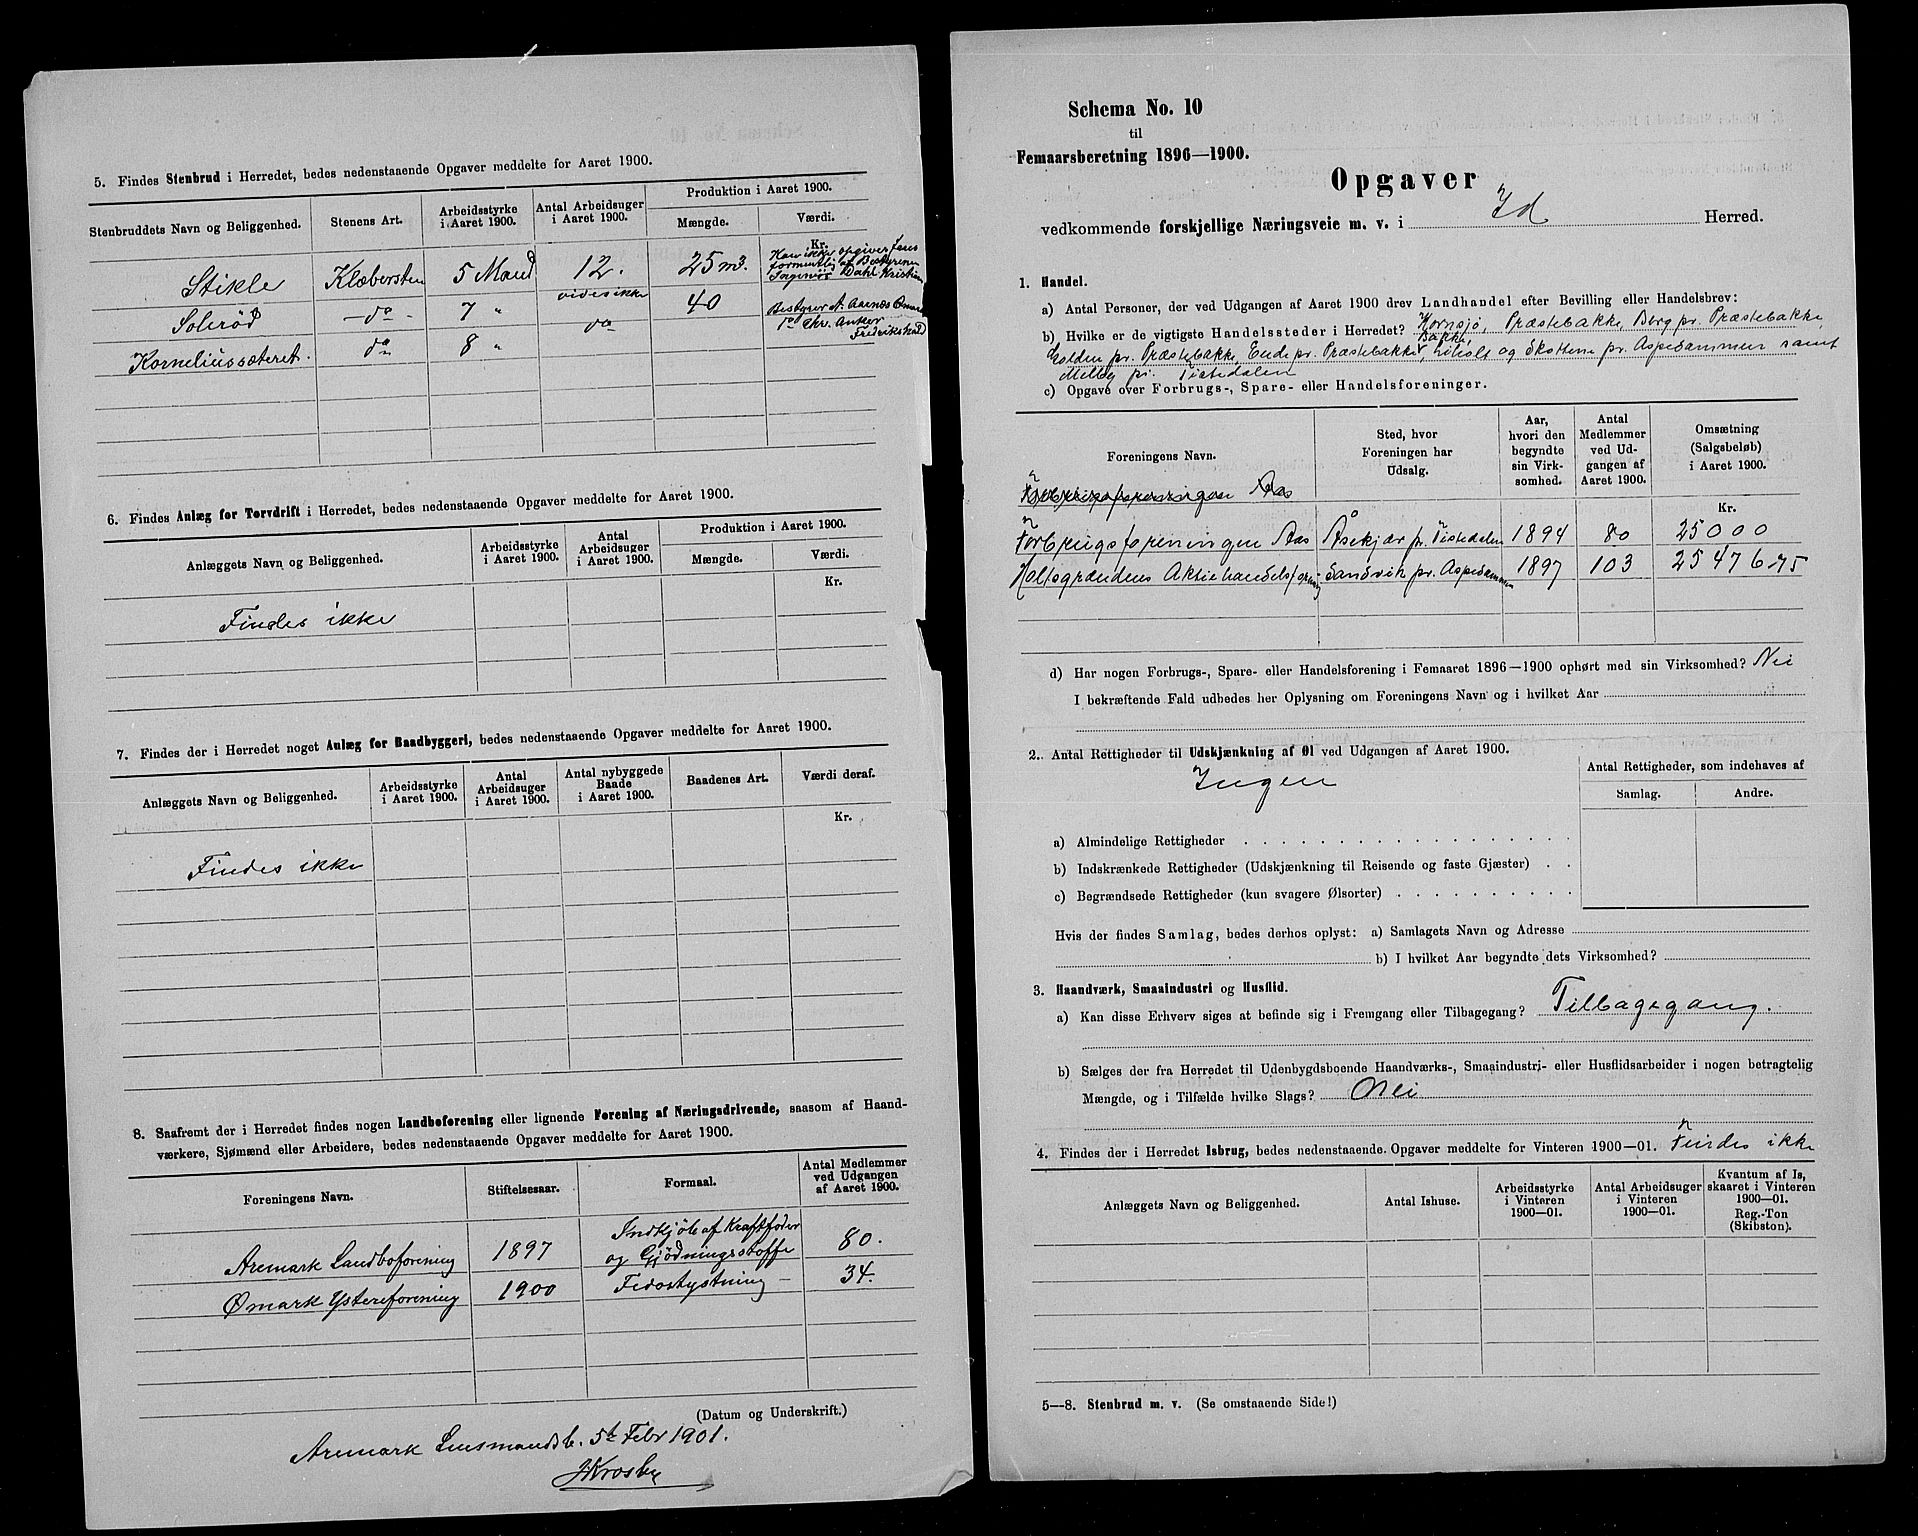 5. Findes Stenbrud i Herredet, bedes nedenstaaende Opgaver meddelte for Aaret 1900.
Stenbruddets Navn og Beliggenhed. Stenens Art. Arbeidsstyrke i Aaret 1900. Antal Arbeidsuger i Aaret 1900. Produktion i Aaret 1900. Mængde. Værdi.
Kr.
Stikle Klæbersten 5 Mand 12. 25 m3. Kan ikke opgives
formentlig af Bestyreren
Dahl Kristian
Solerød – do – 7 " vides ikke 40 Bestyrer A. Aarnes Ømark
Korneliussæteret. do 8 " do do Chr. Anker
Fredrikshald
6. Findes Anlæg for Torvdrift i Herredet, bedes nedenstaaende Opgaver meddelte for Aaret 1900.
Anlæggets Navn og Beliggenhed. Arbeidsstyrke i Aaret 1900. Antal Arbeidsuger i Aaret 1900. Produktion i Aaret 1900. Mængde. Værdi.
Kr.
Findes ikke
7. Findes der i Herredet noget Anlæg for Baadbyggeri, bedes nedenstaaende Opgaver meddelte for Aaret 1900.
Anlæggets Navn og Beliggenhed. Arbeidsstyrke i Aaret 1900. Antal Arbeidsuger i Aaret 1900. Antal nybyggede Baade i Aaret 1900. Baadenes Art. Værdi deraf.
Kr.
Findes ikke
8. Saafremt der i Herredet findes nogen Landboforening eller lignende Forening af Næringsdrivende, saasom af Haand-
værkere, Sjømænd eller Arbeidere, bedes nedenstaaende Opgaver meddelte for Aaret 1900.
Foreningens Navn. Stiftelsesaar. Formaal. Antal Medlemmer ved Udgangen af Aaret 1900.
Aremark Landboforening 1897 Indkjøb af Kraftfoder og Gjødningsstoffe 80.
Ømark Ysteriforening 1900 Fedostystning – 34.
(Datum og Underskrift.)
Aremark Lensmandsb. 5te Febr 1901.
JKrosby
Schema No. 10
til
Femaarsberetning 1896—1900.
Opgaver
vedkommende forskjellige Næringsveie m. v. i Id Herred.
1. Handel.
a) Antal Personer, der ved Udgangen af Aaret 1900 drev Landhandel efter Bevilling eller Handelsbrev:
b) Hvilke er de vigtigste Handelssteder i Herredet? Kornsjø, Præstebakke, Berg pr. Præstebakke,
Holden pr. Præstebakke, Ende pr. Præstebakke, Bakke, Liholt og Skottene pr. Aspedammen samt
Melby pr. Tistedalen
c) Opgave over Forbrugs-, Spare- eller Handelsforeninger.
Foreningens Navn. Sted, hvor Foreningen har Udsalg. Aar, hvori den begyndte sin Virksomhed. Antal Medlemmer ved Udgangen af Aaret 1900. Omsætning (Salgsbeløb) i Aaret 1900.
Kr.
Forbrugsforeningen Aas
Forbrugsforeningen Aas Åsekjær pr. Tistedalen 1894 80 25000
Holtsgrændens Aktiehandelsforening Sandvik pr. Aspedammen 1897 103 25476-75
d) Har nogen Forbrugs-, Spare- eller Handelsforening i Femaaret 1896—1900 ophørt med sin Virksomhed? Nei
I bekræftende Fald udbedes her Oplysning om Foreningens Navn og i hvilket Aar
2. Antal Rettigheder til Udskjænkning af Øl ved Udgangen af Aaret 1900.
Ingen
Antal Rettigheder, som indehaves af
Samlag. Andre.
a) Almindelige Rettigheder
b) Indskrænkede Rettigheder (Udskjænkning til Reisende og faste Gjæster)
c) Begrændsede Rettigheder (kun svagere Ølsorter)
Hvis der findes Samlag, bedes derhos oplyst: a) Samlagets Navn og Adresse
b) I hvilket Aar begyndte dets Virksomhed?
3. Haandværk, Smaaindustri og Husflid.
a) Kan disse Erhverv siges at befinde sig i Fremgang eller Tilbagegang? Tilbagegang.
b) Sælges der fra Herredet til Udenbygdsboende Haandværks-, Smaaindustri- eller Husflidsarbeider i nogen betragtelig
Mængde, og i Tilfælde hvilke Slags? Nei
4. Findes der i Herredet Isbrug, bedes nedenstaaende Opgaver meddelte for Vinteren 1900—01. Findes ikke
Anlæggets Navn og Beliggenhed. Antal Ishuse. Arbeidsstyrke i Vinteren 1900—01. Antal Arbeidsuger i Vinteren 1900—01. Kvantum af Is, skaaret i Vinteren 1900—01. Reg.-Ton (Skibston).
5—8. Stenbrud m. v. (Se omstaaende Side!)